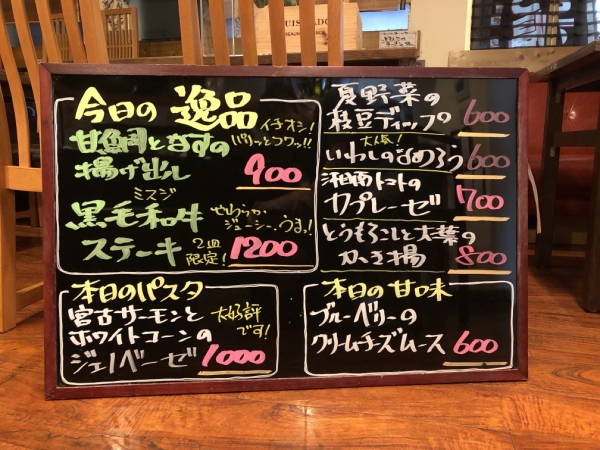 今日の 逸品
イチオシ!
甘鯛となすの
パリッとフワッ!!
揚げ出し 900
ミスジ
黒毛和牛
やわらか
ジューシー、うまっ!
ステーキ 2皿限定! 1200
夏野菜の
枝豆ディップ 600
大人気!
いわしのなめろう 600
湘南トマトの
カプレーゼ 700
とうもろこしと大葉の
かき揚 800
本日のパスタ
宮古サーモンと
大好評です!
ホワイトコーンの
ジェノベーゼ 1000
本日の甘味
ブルーベリーの
クリームチーズムース 600